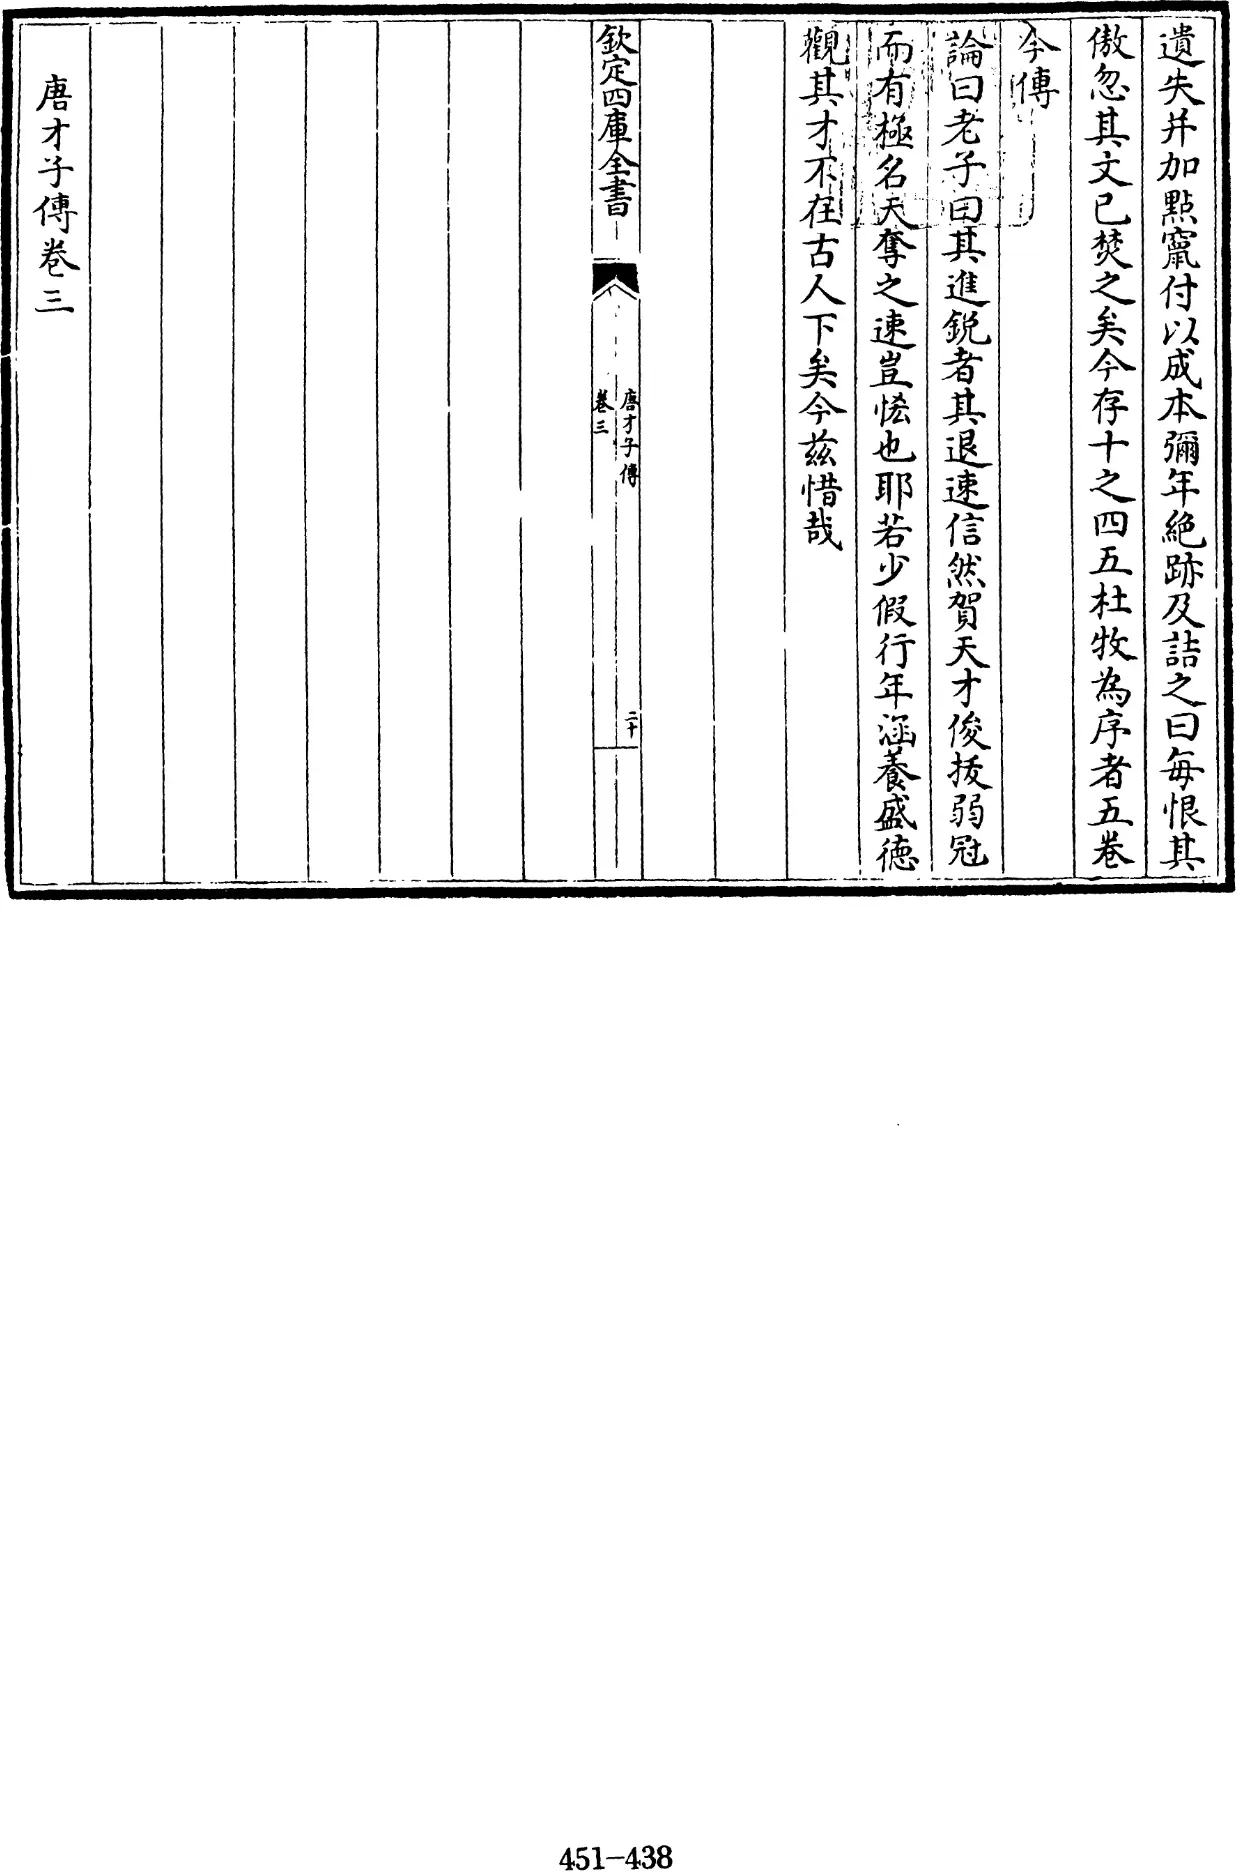 遺失并加點竄付以成本彌年絶跡及詰之曰每恨其
傲忽其文已焚之矣今存十之四五杜牧為序者五卷
今傳
論曰老子曰其進鋭者其退速信然賀天才俊拔弱冠
而有極名天奪之速豈恡也耶若少假行年涵養盛德
觀其才不在古人下矣今兹惜哉
欽定四庫全書
唐才子傳
卷三
二十
唐才子傳卷三
451-438